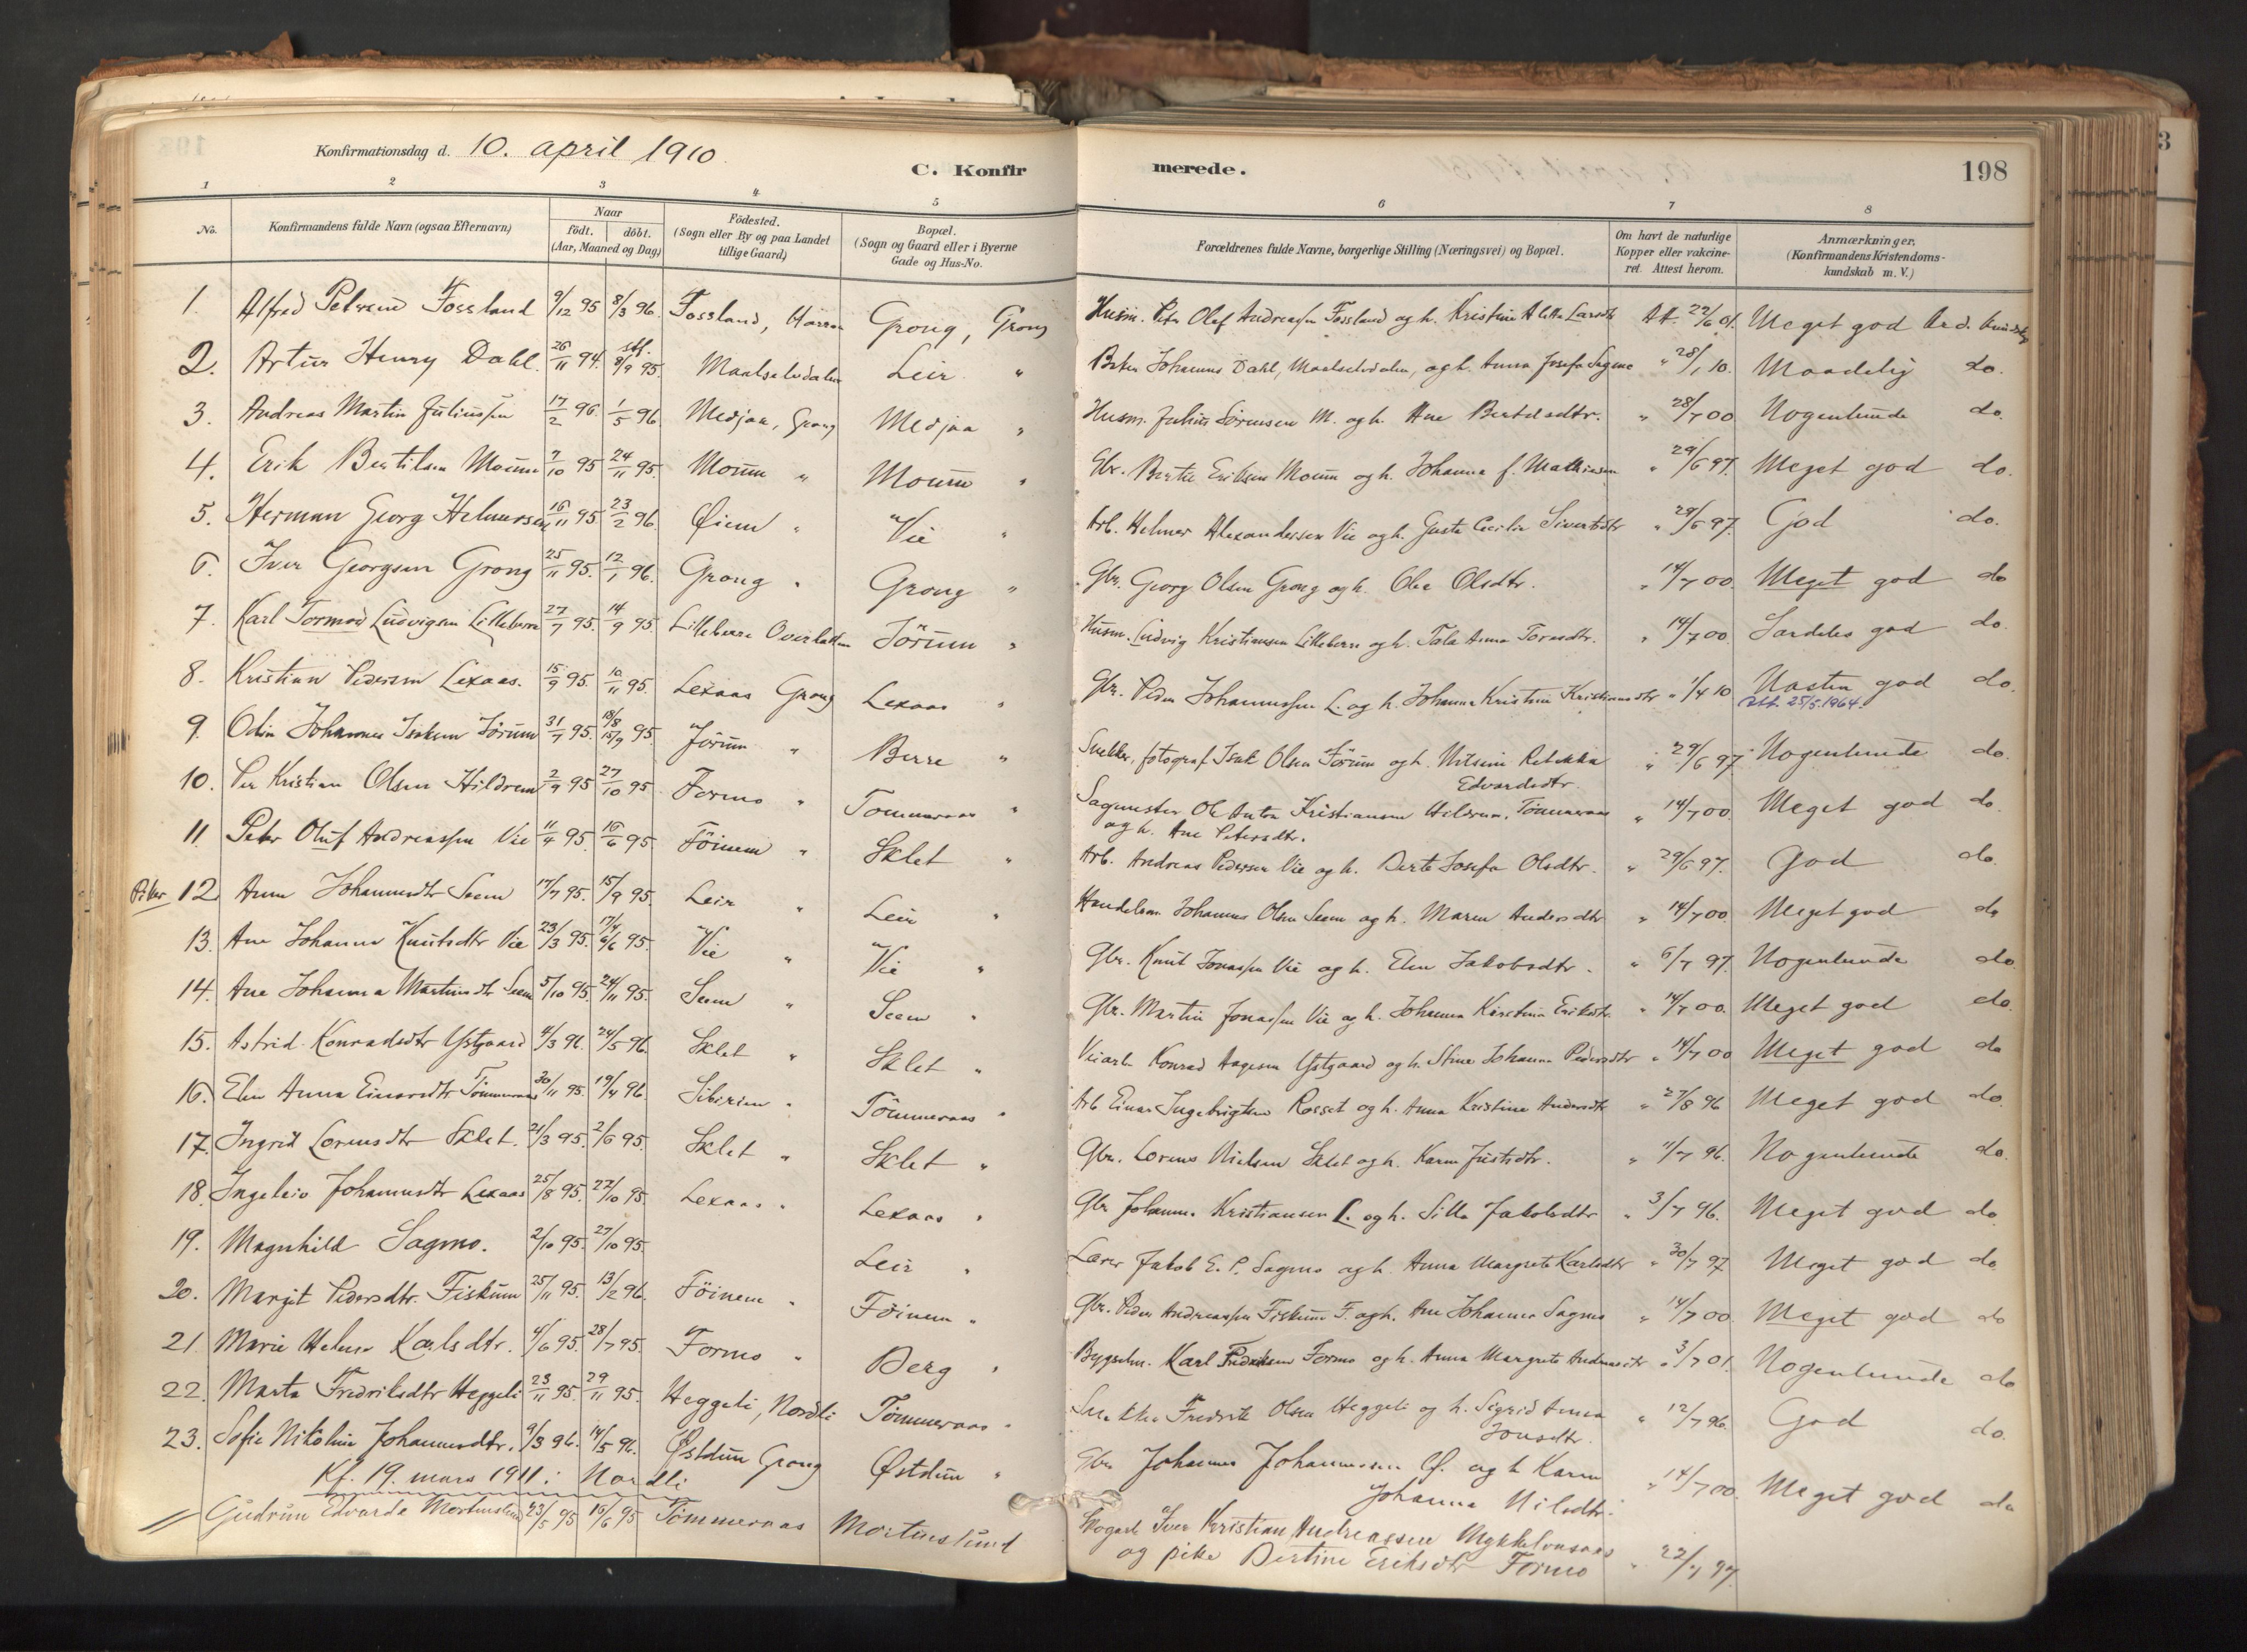 Konfirmationsdag d. 10. april 1910
C. Konfirmerede. 198
1 2 3 4 5 6 7 8
No. Konfirmandens fulde Navn (ogsaa Efternavn) Naar født. døbt. (Aar, Maaned og Dag) Fødested. (Sogn eller By og paa Landet tillige Gaard) Bopæl. (Sogn og Gaard eller i Byerne Gade og Hus-No. Forældrenes fulde Navne, borgerlige Stilling (Næringsvei) og Bopæl. Om havt de naturlige Kopper eller vakcineret. Attest herom. Anmærkninger. (Konfirmandens Kristendomskundskab m. V.)
1. Alfred Petersen Fossland 9/12 95 8/3 96. Fossland, Harran Grong, Grong Husm. Peter Olaf Andreassen Fossland og h. Kristine Aletta Larsdtr Att. 22/6 01. Meget god
2. Artur Henry Dahl. 26/11 94. stf. 8/9 95. Maalselvdalen Leir " Johannes Dahl, Maalselvdalen, og h. Anna Josefa Sagmo " 28/1 10. Maadelig do.
3. Andreas Martin Juliussen 17/2 96. 1/5 96. Medjaa, Grong Medjaa " Husm. Julius Sørensen M. og h. Ane Bertelsdtr. " 28/7 00 Nogenlunde do.
4. Erik Bertilsen Moum 7/10 95 24/11 95. Moum " Moum " Gbr. Bertil Eriksen Moum og h. Johanna f. Mathiasen " 29/6 97. Meget god do.
5. Herman Georg Helmersen 16/11 95 23/2 96. Øium " Vie " Arb. Helmer Alexandersen Vie og h. Gusta Cecilie Sivertsdtr " 29/6 97. God do.
6. Iver Georgsen Grong 25/11 95. 12/1 96. Grong " Grong " Gbr. Georg Olsen Grong og h. Olea Olsdtr. " 14/7 00 Meget god do
7. Karl Tormod Ludvigsen Lilleberre 27/7 95. 14/9 95. Lilleberre Overhallen Jørum " Husm. Ludvig Kristiansen Lilleberre og h. Tala Anna Torasdtr. " 14/7 00. Særdeles god do.
8. Kristian Pedersen Lexaas. 15/9 95. 10/11 95. Lexaas Grong Lexaas " Gbr. Peder Johannessen L. og h. Johanna Kristine Kristiansdtr " 1/4 10 Næsten god do.
Att. 25/5. 1964.
9. Odin Johannes Isaksen Jørum 31/7 95. 18/8 15/9 95. Jørum " Berre " Snekker, fotograf Isak Olsen Jørum og h. Nilsine Rebekka Edvardsdtr. " 29/6 97. Nogenlunde do.
10. Per Kristian Olsen Hildrem 2/9 95 27/10 95. Formo " Tømmeraas " Sagmester Ole Anton Kristiansen Hildrem, Tømmeraas og h. Ane Petersdtr. " 14/7 00. Meget god do.
11. Peter Oluf Andreassen Vie 11/4 95. 16/6 95. Føinem " Sklet " Arb. Andreas Pedersen Vie og h. Berte Josefa Olsdtr. " 29/6 97. God do.
Piker 12. Anna Johannesdtr Seem 17/7 95. 15/9 95. Leir " Leir " Handelsm. Johannes Olsen Seem og h. Maren Andersdtr " 14/7 00. Meget god do
13. Ane Johanna Knutsdtr Vie 23/3 95. 17/4 6/6 95. Vie " Vie " Gbr. Knut Jonassen Vie og h. Elen Jakobsdtr. " 6/7 97. Nogenlunde do.
14. Ane Johanna Martinsdtr Seem 5/10 95. 24/11 95. Seem " Seem " Gbr. Martin Jonassen Vie og h. Johanna Kirstine Eriksdtr. " 14/7 00. Meget god do.
15. Astrid Konradsdtr Ystgaard 4/3 96. 24/5 96. Sklet " Sklet " Veiarb. Konrad Aagesen Ystgaard og h. Stine Johanna Pedersdtr " 14/7 00 Meget god do
16. Elen Anna Einarsdtr Tømmeraas 30/11 95. 19/4 96. Sibirien " Tømmeraas " Arb Einar Ingebrigtsen Rosset og h. Anna Kristine Andersdtr " 27/8 96 Meget god do.
17. Ingrid Lorensdtr Sklet. 21/3 95. 2/6 95. Sklet " Sklet " Gbr. Lorens Nielsen Sklet og h. Karen Justsdtr. " 11/7 96. Nogenlunde do.
18. Ingeleiv Johannesdtr Lexaas 25/8 95. 27/10 95. Lexaas " Lexaas " Gbr Johannes Kristiansen L. og h. Silla Jakobsdtr " 3/7 96. Meget god do
19. Magnhild Sagmo. 2/10 95. 27/10 95. Leir " Lærer Jakob E. P. Sagmo og h. Anna Margrete Karlsdtr " 30/7 97 Meget god do
20. Margit Pedersdtr. Fiskum 25/11 95. 13/2 96. Føinem " Føinem " Gbr. Peder Andreassen Fiskum F. og h. Ane Johanna Sagmo " 14/7 00. Meget god do
21. Marie Helene Karlsdtr. 4/6 95. 28/7 95. Formo " Berg " Bygselm. Karl Fredriksen Formo og h. Anna Margrete Andreasdtr " 3/7 01. Nogenlunde do
22. Marta Fredriksdtr Heggeli 23/11 95. 29/11 95. Heggeli, Nordli Tømmeraas " Snekker Fredrik Olsen Heggeli og h. Sigrid Anna Jonsdtr. " 12/7 96. God do.
23. Sofie Nikoline Johannesdtr. 9/3 96. 14/5 96. Østdun Grong Østdun " Gbr Johannes Johannessen Ø. og h Karen Johanna Nilsdtr. " 14/7 00. Meget god do
Kf. 19. mars 1911 i Nordli
Gudrun Edvarde Mortenslund 23/5 95 16/6 95 Tømmeraas Mortenslund Iver Kristian Andreassen Mykkelvasaas og pike Bertine Eriksdtr Formo " 22/7 97.